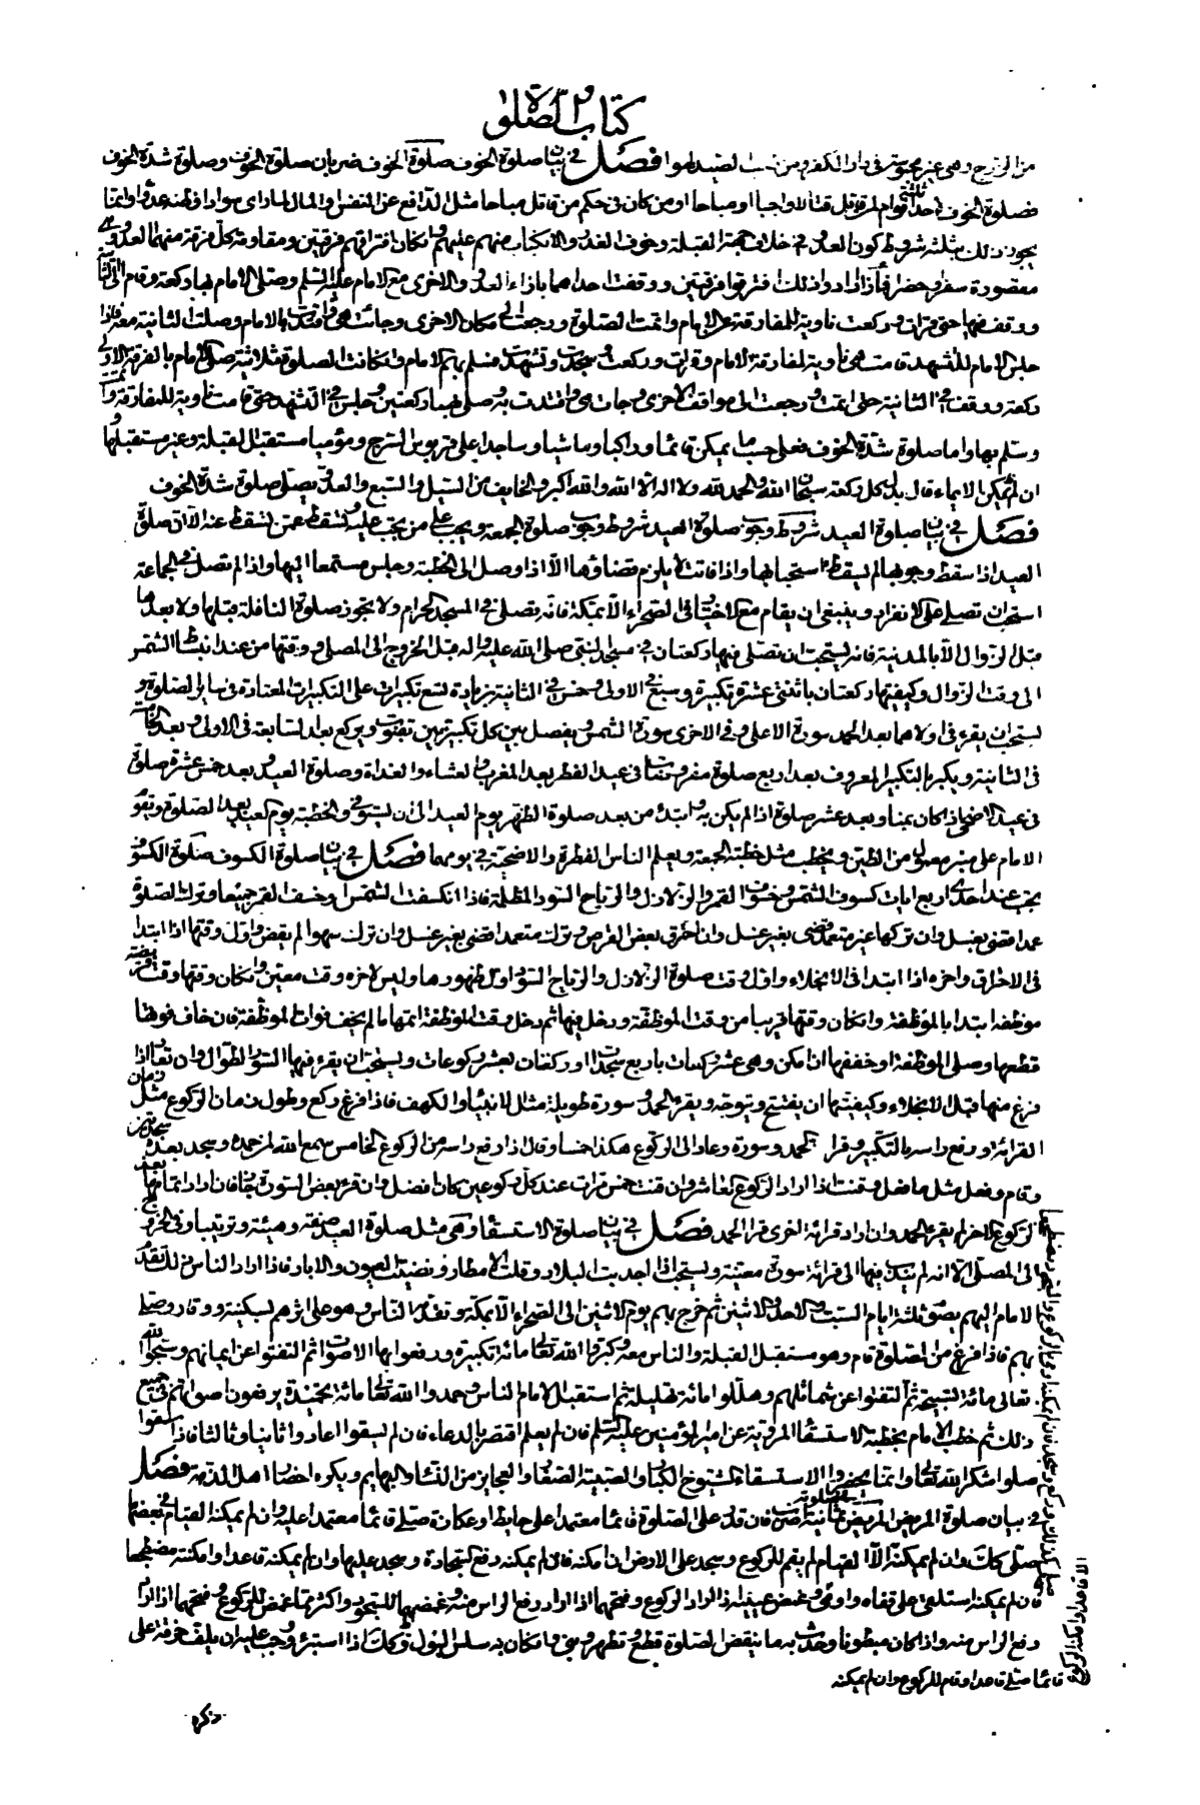 كتاب الصلوة
فصل في بيان صلوة الخوف صلوة الخوف ضربان صلوة الخوف وصلوة شدة الخوف
فصلوة الخوف
يجوز ذلك بثلثة شروط كون العدو في خلاف جهة القبلة وخوف الغدر والانكباب منهم عليهم وامكان افتراقهم فرقتين ومقاومة كل فرقة منهما العدو وهي
مقصورة سفرا وحضرا فاذا ارادوا ذلك افترقوا فرقتين ووقفت احداهما بازاء العدو والاخرى مع الامام عليه السلم وصلى الامام بها ركعة وقام الى الثانية
ووقف فيها حتى قرات وركعت ناوية للمفارقة عن الامام واتمت الصلوة ورجعت الى مكان الاخرى وجائت هي واقتدت بالامام وصلت الثانية معه فاذا
جلس الامام للتشهد قامت هي ناوية لمفارقة الامام وقرات وركعت وسجدت وتشهدت فسلم بهم الامام وان كانت الصلوة ثلاثية صلى الامام بالفرقة الاولى
ركعة ووقف في الثانية حتى اتمت ورجعت الى مواقف الاخرى وجات هي واقتدت به وصلى بها ركعتين وجلس في التشهد حتى قامت ناوية للمفارقة واتمت
وسلم بها واما صلوة شدة الخوف فعلى حسب ما يمكن قائما وراكبا وماشيا وساجدا على قربوس السرج ومؤميا مستقبل القبلة وغير مستقبلها
ان لم يمكن الايماء قال بدل كل ركعة سبحان الله والحمد لله ولا اله الا الله والله اكبر والخايف من السيل والسبع والعدو يصلى صلوة شدة الخوف
فصل في بيان صلوة العيد شروط وجوب صلوة العيد شروط وجوب صلوة الجمعة ويجب على من يجب عليه وتسقط عمن تسقط عنه الا ان صلوة
العيد اذا سقط وجوبها لم يسقط استحبابها واذا فاتت لا يلزم قضاؤها الا اذا وصل الى الخطبة وجلس مستمعا اليها واذا لم تصل في الجماعة
استحب ان تصلى على الانفراد وينبغي ان يقام مع الاختيار في الصحراء الا بمكة فانه يصلى في المسجد الحرام ولا يجوز صلوة النافلة قبلها ولا بعدها
قبل الزوال الا بالمدينة فانه يستحب ان تصلى فيها ركعتان في مسجد النبي صلى الله عليه واله قبل الخروج الى المصلى ووقتها من عند انبساط الشمس
الى وقت الزوال وكيفيتها ركعتان باثنتي عشرة تكبيرة وسبع في الاولى وخمس في الثانية بزيادة تسع تكبيرات على التكبيرات المعتادة في ساير الصلوة و
يستحب ان يقرء في اولاهما بعد الحمد سورة الاعلى وفي الاخرى سورة الشمس ويفصل بين كل تكبيرتين بقنوت ويركع بعد السابعة في الاولى وبعد الخامسة
في الثانية ويكبر بالتكبير المعروف بعد اربع صلوة مفروضات في عيد الفطر بعد المغرب والعشاء والغداة وصلوة العيد وبعد خمس عشرة صلوة
في عيد الاضحى اذا كان بمنا وبعد عشر صلوة اذا لم يكن به وابتدء من بعد صلوة الظهر يوم العيد الى ان يستوفى والخطبة يوم العيد بعد الصلوة ويقوم
الامام على منبر معمول من الطين ويخطب مثل خطبة الجمعة ويعلم الناس الفطرة والاضحية في يومهما فصل في بيان صلوة الكسوف صلوة الكسوف
يجب عند احدى اربع ايات كسوف الشمس وخسوف القمر والزلازل والرياح السود المظلمة فاذا انكسفت الشمس او خسف القمر جميعا وترك الصلوة
عمدا قضى بغسل وان تركها غير متعمد قضى بغير غسل وان احترق بعض القرص وترك متعمدا قضى بغير غسل وان ترك سهوا لم يقض واول وقتها اذا ابتدا
في الاحتراق واخره اذا ابتدا في الانجلاء واول وقت صلوة الزلازل والرياح السود اول ظهورها وليس لاخره وقت معين وان كان وقتها وقت فريضة
موظفة ابتدا بالموظفة وان كان وقتها قريبا من وقت الموظفة ودخل فيها ثم دخل وقت الموظفة اتمها ما لم يخف فوات الموظفة فان خاف فوتها
قطعها وصلى الموظفة او خففها اذا امكن وهي عشر ركعات باربع سجدات او ركعتان بعشر ركوعات ويستحب ان يقرء فيها السور الطوال وان تعاد اذا
فرغ منها قبل الانجلاء وكيفيتها ان يفتتح ويتوجه ويقرء الحمد وسورة طويلة مثل الانبياء والكهف فاذا فرغ ركع وطول زمان الركوع مثل زمان
القرائة ورفع راسه بالتكبير وقرا الحمد وسورة وعاد الى الركوع هكذا خمسا وقال اذا رفع راسه من الركوع الخامس سمع الله لمن حمده وسجد بعده سجدتين
وقام وفعل مثل ما فعل وقنت اذا اراد الركوع العاشر وان قنت خمس مرات عند كل ركوعين كان افضل وان قرء بعض السورة جاز فان اراد اتمامها بعد
الركوع الاخر لم يقرء الحمد وان اراد قرائة اخرى قرا الحمد فصل في بيان صلوة الاستسقاء وهي مثل صلوة العيد صفة وهيئة وترتيبا وفي الخروج
الى المصلى الا انه لم يتبدل فيها الى قرائة سورة معينة ويستحب اذا اجدبت البلاد وقلت الامطار ونضبت العيون والابار فاذا اراد الناس ذلك تقدم
الامام اليهم بصوم ثلثة ايام السبت والاحد والاثنين ثم خرج بهم يوم الاثنين الى الصحراء الا بمكة وتقدم الناس وهو على اثرهم بسكينة ووقار وصلى
بهم فاذا فرغ من الصلوة قام وهو مستقبل القبلة والناس معه وكبروا الله تعالى مائة تكبيرة ورفعوا بها الاصوات ثم التفتوا عن ايمانهم وسبحوا لله
تعالى مائة تسبيحة ثم التفتوا عن شمائلهم وهللوا مائة تهليلة ثم استقبل الامام الناس وحمدوا الله تعالى مائة تحميدة يرفعون اصواتهم في جميع
ذلك ثم خطب الامام بخطبة الاستسقاء المروية عن امير المؤمنين عليه السلم فان لم يعلم اقتصر بالدعاء فان لم يسقوا اعادوا ثانيا وثالثا فاذا سقوا
صلوا شكرا لله تعالى وانما يحضر الاستسقاء الشيوخ الكبار والصبية الصغار والعجايز من النساء والبهايم ويكره احضار اهل الذمة فصل
في بيان صلوة المريض المريض ثمانية اضرب فان قدر على الصلوة قائما معتمدا على حايط او عكازة صلى قائما معتمدا عليه وان لم يمكنه القيام في بعضها
صلى كذلك وان لم يمكنه الا القيام لم يقم للركوع وسجد على الارض ان امكنه فان لم يمكنه رفع السجادة وسجد عليها وان لم يمكنه قاعدا وامكنه مضطجعا
فان لم يمكنه استلقى على قفاه واومى وغمض عينيه اذا اراد الركوع وفتحهما اذا اراد رفع الراس منه وغمضهما للسجود واكثرهما غمض للركوع وفتحهما اذا اراد
رفع الراس منه واذا كان مبطونا وحدث به ما ينقض الصلوة قطع وتطهر وبنى وان كان به سلس البول فكذلك اذا استبرء وجب عليه ان يلف خرقة على
قائما صلى قاعدا وقام للركوع وان لم يمكنه
ذكره